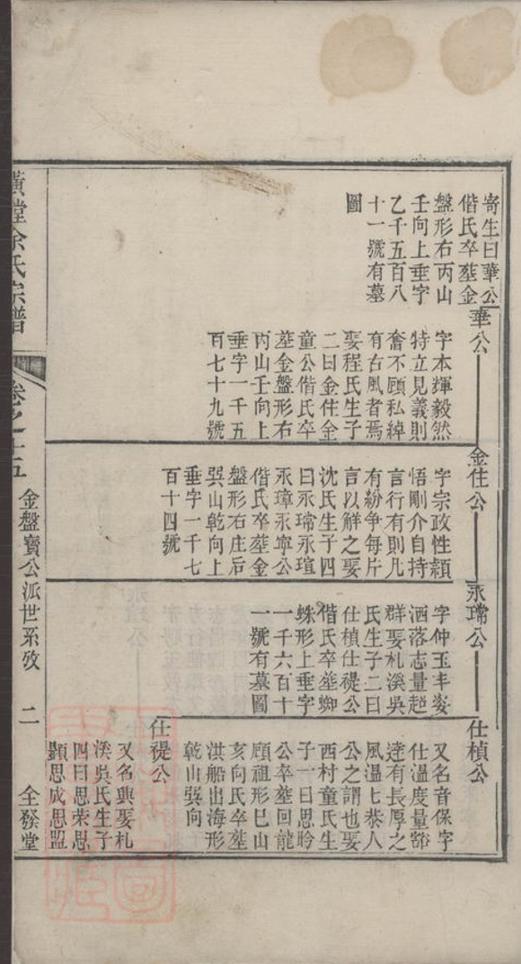 寄生曰華公
偕氏卒塟金
盤形右丙山
壬向上垂字
乙千五百八
十一號有墓
圖
華公
字本輝毅然
特立見義則
奮不顧私綽
有右風者焉
娶程氏生子
二曰金住全
童公偕氏卒
塟金盤形右
丙山壬向上
垂字一千五
百七十九號
金住公
字宗政性頴
悟剛介自持
言行有則凢
有紛爭每片
言以觧之娶
沈氏生子四
曰永瑺永瑄
永璋永寧公
偕氏卒塟金
盤形右庄后
巽山乾向上
垂字一千七
百十四號
永瑺公
字仲玉丰姿
洒落志量超
群娶札溪吳
氏生子二曰
仕楨仕禔公
偕氏卒塟蜘
蛛形上垂字
一千六百十
一號有墓圖
仕楨公
又名音保字
仕溫度量豁
達有長厚之
風溫七恭人
公之謂也娶
西村童氏生
子一曰思昑
公卒塟回龍
顧祖形巳山
亥向氏卒塟
洪船出海形
乾山巽向
仕禔公
又名興娶札
溪吳氏生子
四曰思荣思
顥思成思盟
余氏宗譜
卷之十五
金盤寶公派世系攷 二
全發堂